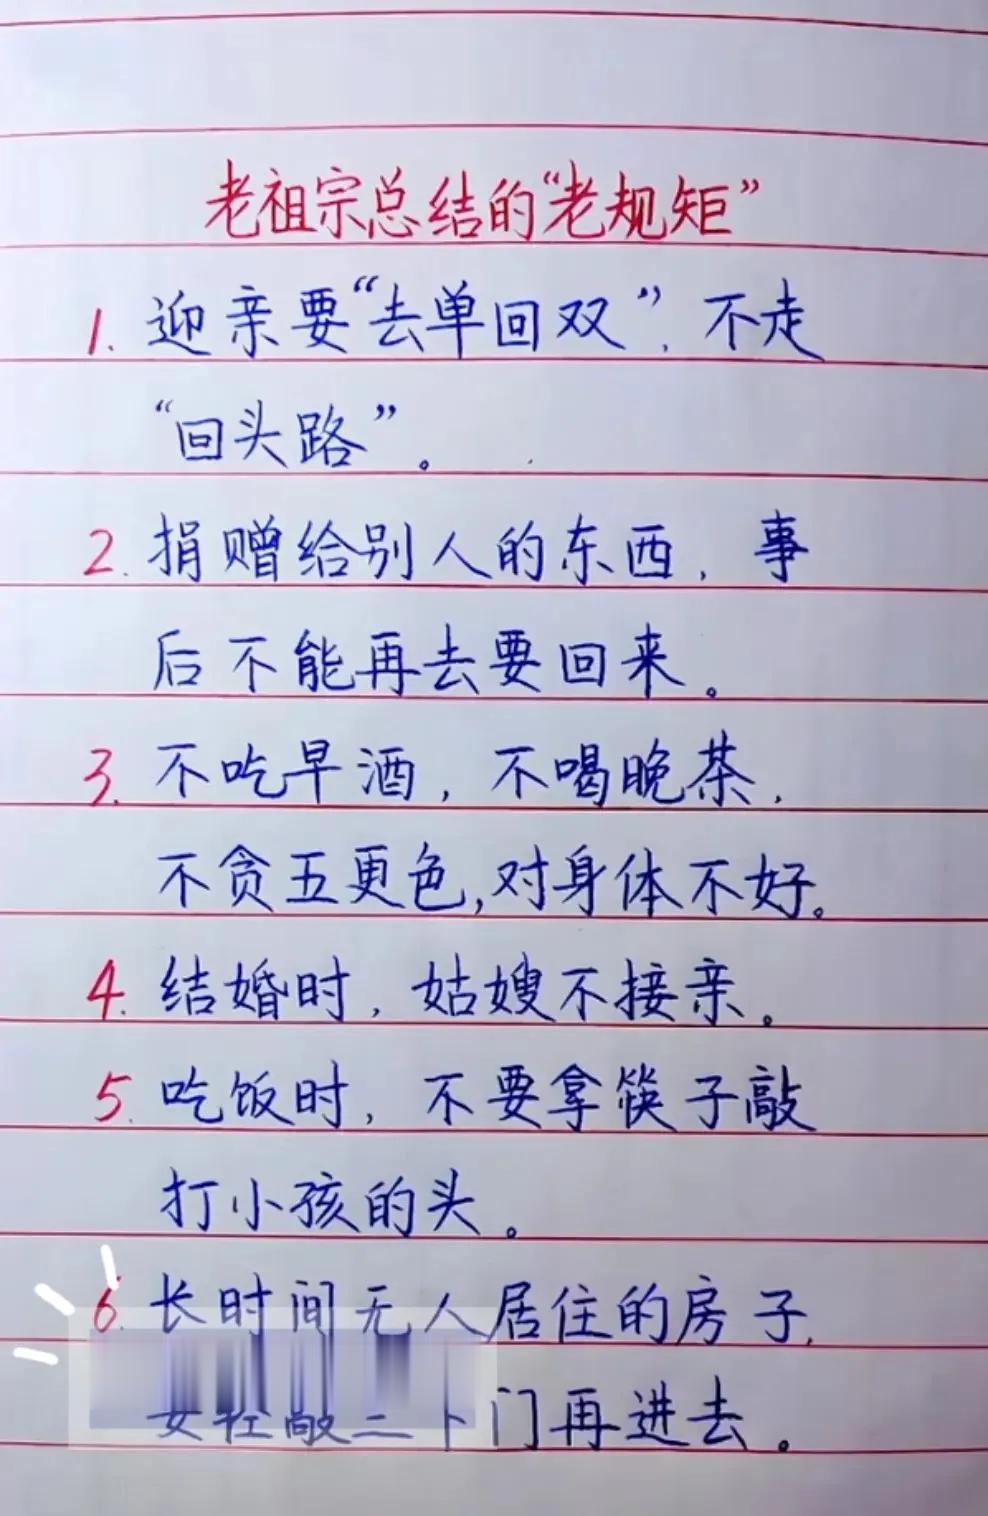 老祖宗总结的“老规矩”
1. 迎亲要“去单回双”，不走
“回头路”。
2. 捐赠给别人的东西，事
后不能再去要回来。
3. 不吃早酒，不喝晚茶，
不贪五更色，对身体不好。
4. 结婚时，姑嫂不接亲。
5. 吃饭时，不要拿筷子敲
打小孩的头。
6. 长时间无人居住的房子，
门再进去。